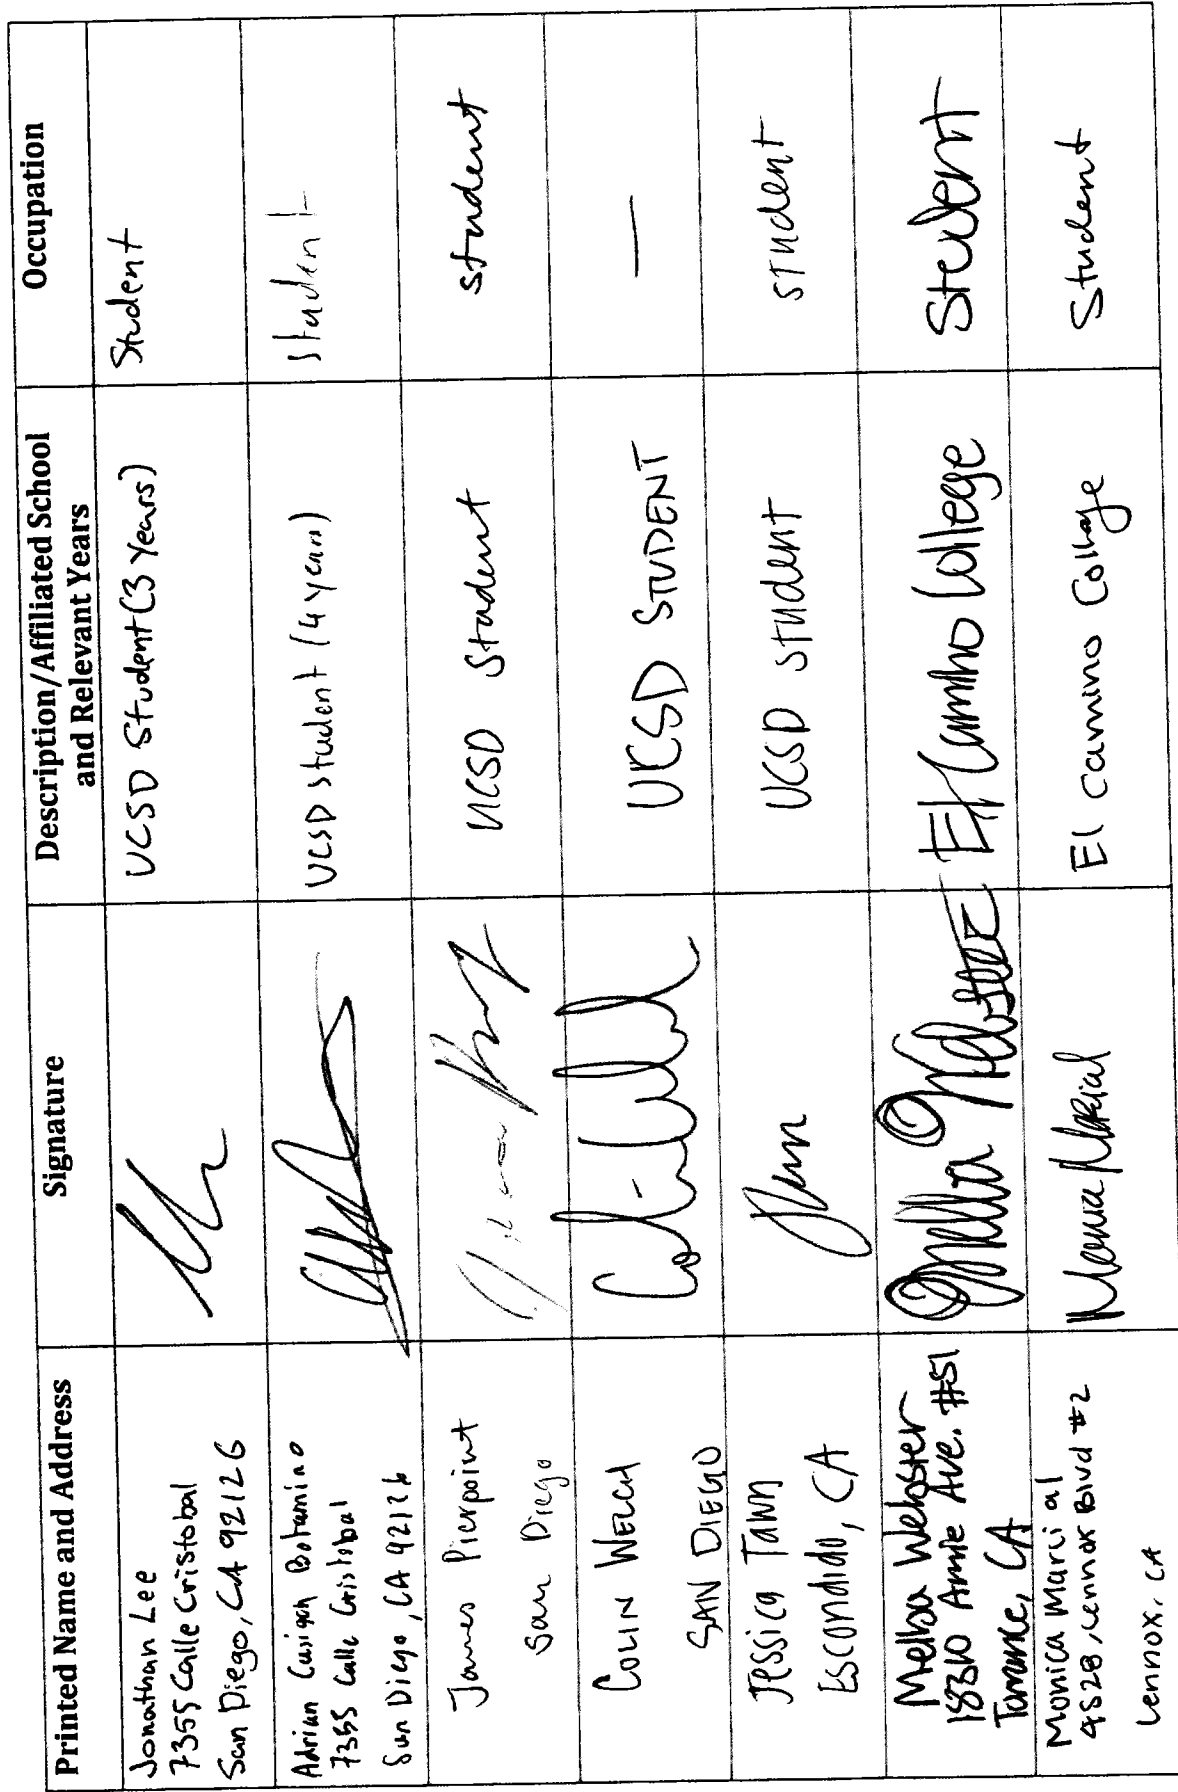 Printed Name and Address
Signature
Description/Affiliated School
and Relevant Years
Occupation
Jonathan Lee
7355 Calle Cristobal
San Diego, CA 92126
UCSD Student (3 Years)
Student
Adrian
7355 Calle Cristobal
San Diego, CA 92126
UCSD student (4 years)
student
James Pierpoint
San Diego
UCSD Student
student
COLIN WELCH
SAN DIEGO
UCSD STUDENT
—
Jessica Tawn
Escondido, CA
UCSD student
student
Melba Webster
Ave. #51
Torrance, CA
Melba Webster
El Camino College
Student
Monica Marcial
4528 Lennox Blvd #2
Lennox, CA
Monica Marcial
El Camino College
Student